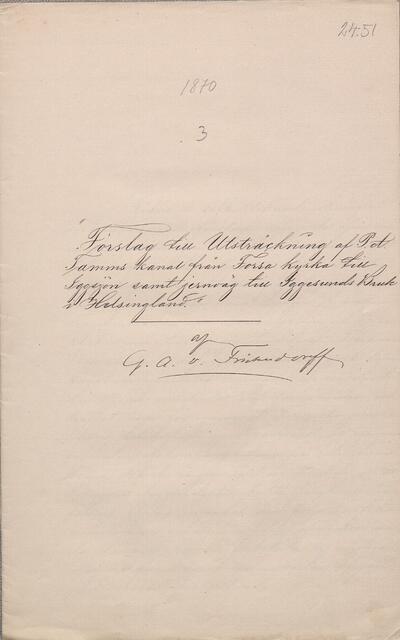 24:51
1870
3
"Förslag till Utsträckning af P. A.
Tamms kanal från Forsa kyrka till
Iggsjön samt jernväg till Iggesunds Bruk
i Helsingland."
af
G. A. v.